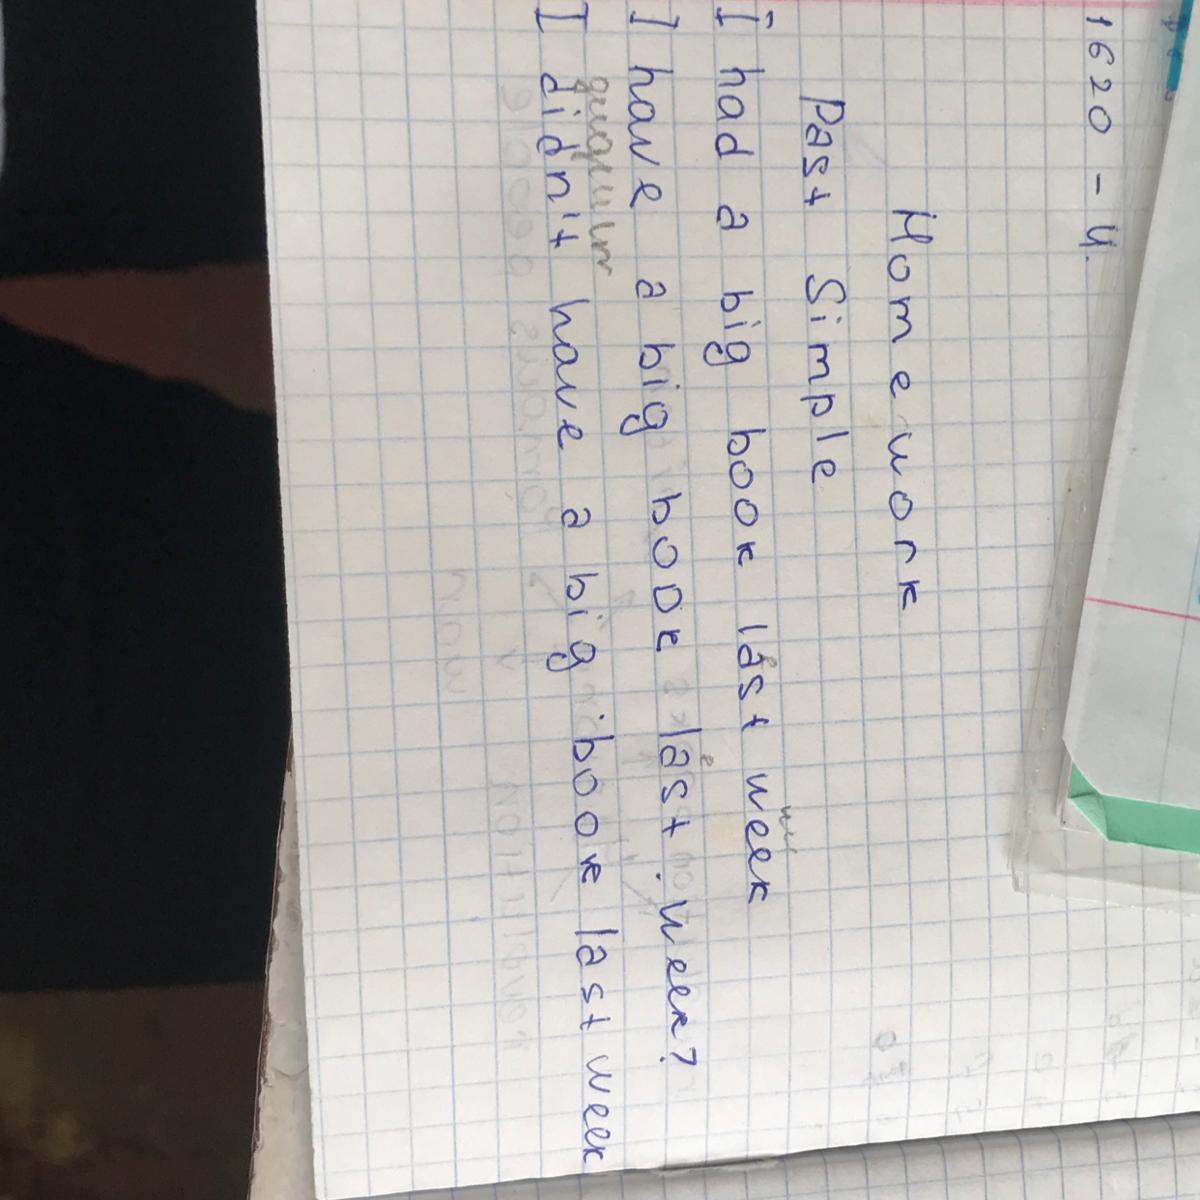 1620 - 4.
Homework
Past Simple
I had a big book last week
I have a big book last week?
I didn't have a big book last week